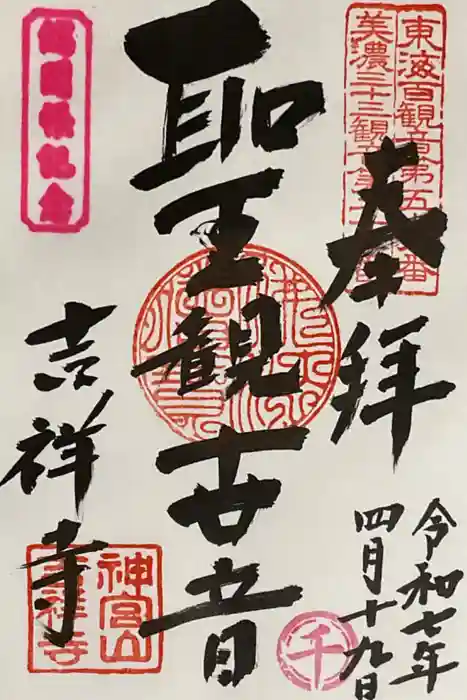 東海百観音第五
美濃三十三観音第
奉拝
令和七年
四月十九日
聖観世音
御開帳記念
吉祥寺
神宮山
吉祥寺
千